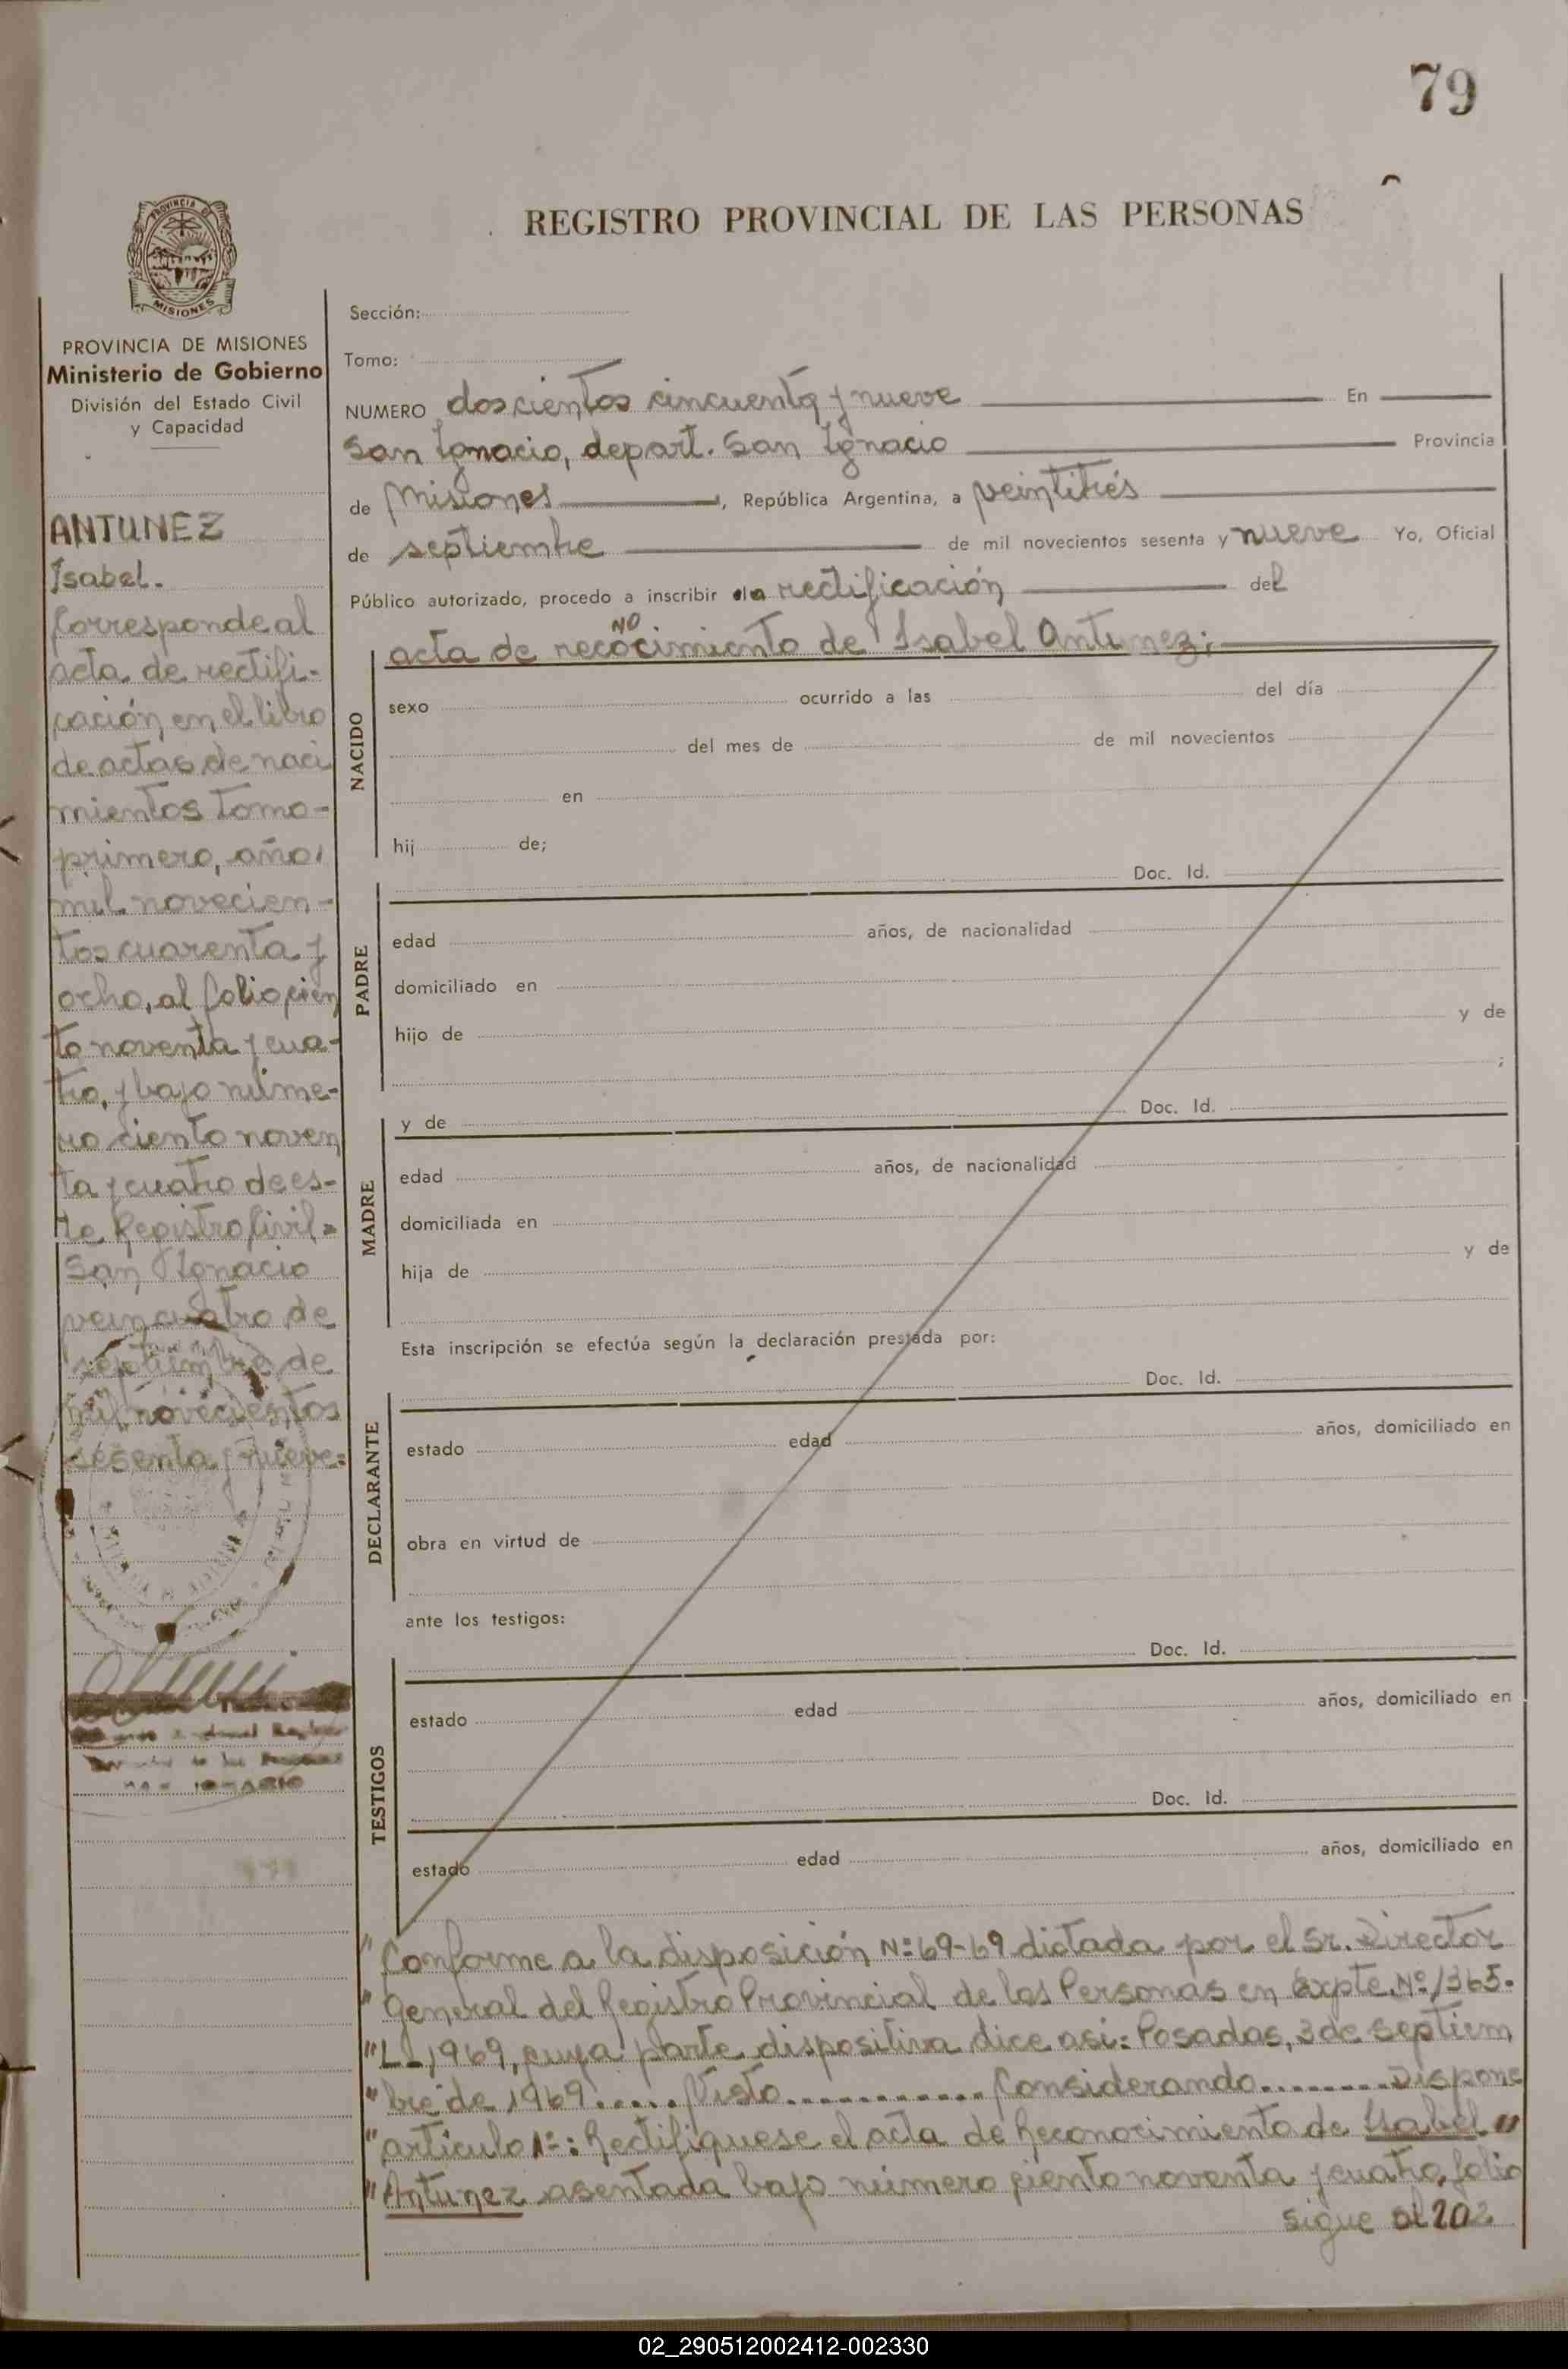 79
REGISTRO PROVINCIAL DE LAS PERSONAS
PROVINCIA DE
MISIONES
PROVINCIA DE MISIONES
Ministerio de Gobierno
División del Estado Civil
y Capacidad
ANTUNEZ
Isabel.
Corresponde al
acta de rectifi-
cación, en el libro
de actas de naci
mientos Tomo-
primero, año,
mil novecien-
tos cuarenta y
ocho, al folio cien
to noventa y cua-
tro, y bajo núme-
ro ciento noven
ta y cuatro de es-
te Registro Civil=
San Ignacio
veincuatro de
septiembre de
mil novecientos
sesenta y nueve=
Sección:
Tomo:
NUMERO doscientos cincuenta y nueve En
San Ignacio, depart. San Ignacio Provincia
de Misiones, República Argentina, a veintitrés
de septiembre de mil novecientos sesenta y nueve Yo, Oficial
Público autorizado, procedo a inscribir la rectificación del
acta de recocimiento de Isabel Antunez;
NO
NACIDO
sexo ocurrido a las del día
del mes de de mil novecientos
en
hij de;
PADRE
Doc. Id.
edad años, de nacionalidad
domiciliado en
hijo de y de
;
MADRE
y de Doc. Id.
edad años, de nacionalidad
domiciliada en
hija de y de
Esta inscripción se efectúa según la declaración prestada por:
DECLARANTE
Doc. Id.
estado edad años, domiciliado en
obra en virtud de
ante los testigos:
TESTIGOS
Doc. Id.
estado edad años, domiciliado en
Doc. Id.
estado edad años, domiciliado en
" Conforme a la disposición Nº 69-69 dictada por el Sr. Director
" General del Registro Provincial de las Personas en Expte. Nº 1365-
" L-1969, cuya parte dispositiva dice asi: Posadas, 3 de septiem
" bre de 1969..... Visto............ Considerando........ Dispone
" artículo 1º: Rectifiquese el acta de Reconocimiento de Isabel "
" Antunez asentada bajo número ciento noventa y cuatro, folio
sigue al 202
02_290512002412-002330